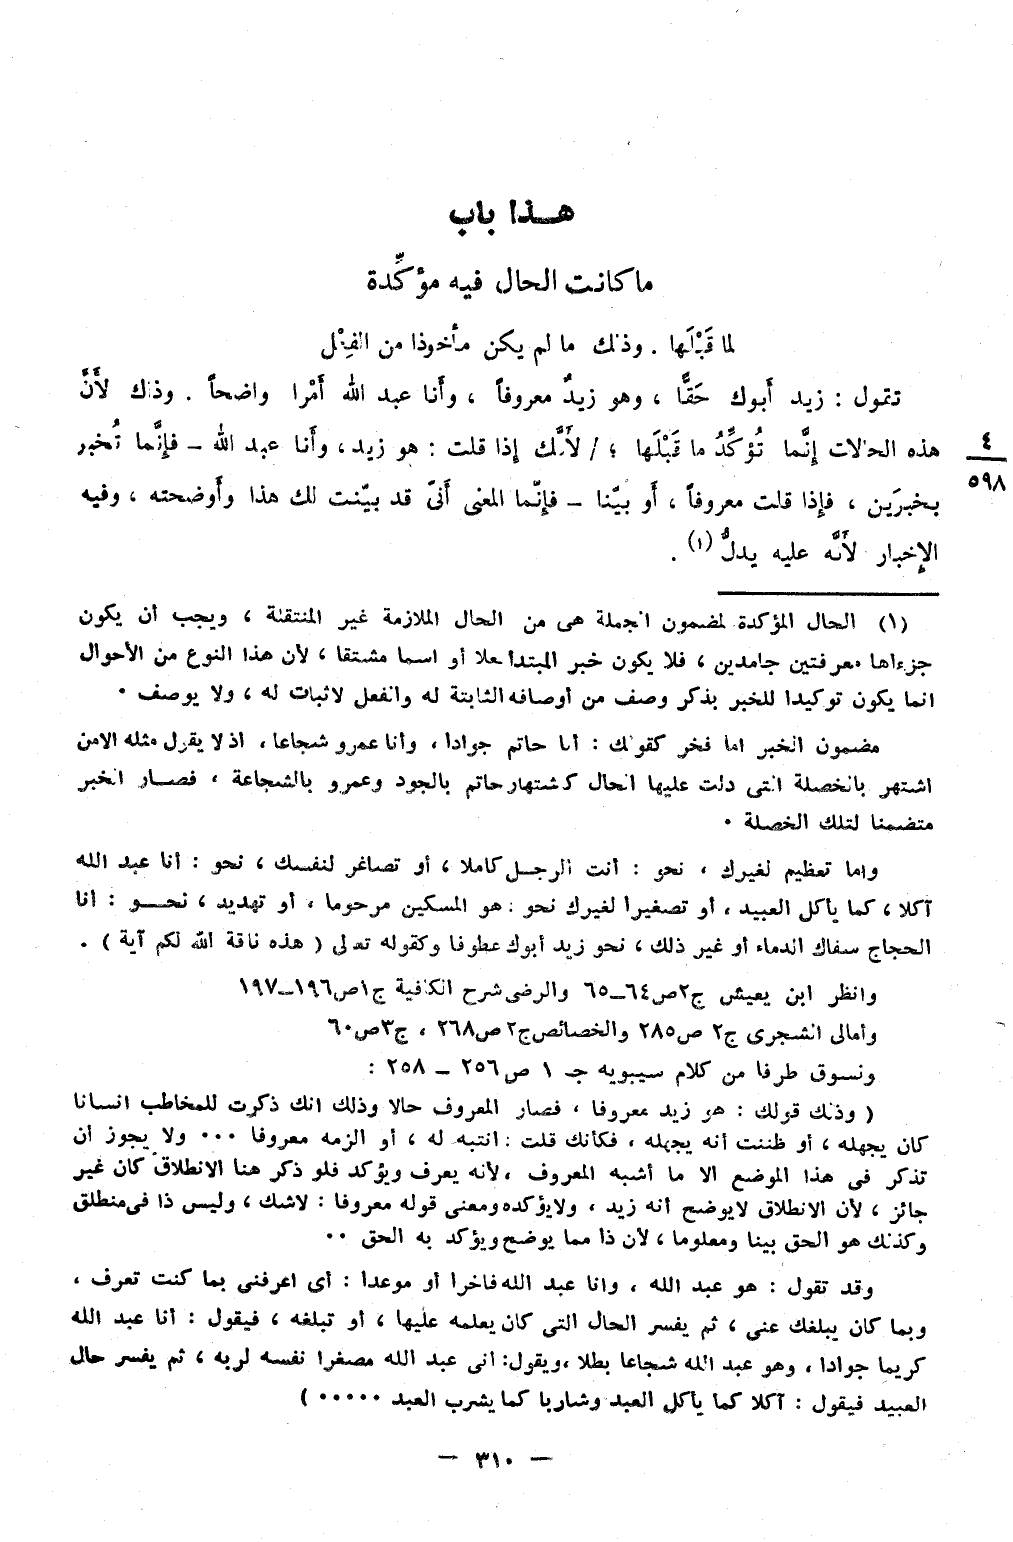 هـذا باب
ما كانت الحال فيه مؤكِّدة
لما قَبْلَها . وذلك ما لم يكن مأخوذا من الفِعْل
تقول : زيد أَبوك حَقًّا ، وهو زيدٌ معروفاً ، وأَنا عبد الله أَمْرا واضحاً . وذلك لأَنَّ
هذه الحالات إِنَّما تُؤكِّدُ ما قَبْلَها ؛ / لأَنَّك إِذا قلت : هو زيد ، وأَنا عبد الله – فإِنَّما تُخبر
٤
٥٩٨
بخبرَين ، فإِذا قلت معروفاً ، أَو بيّنا – فإِنّما المعنى أَنّى قد بيّنت لك هذا وأَوضحته ، وفيه
الإِخبار لأَنَّه عليه يدلُّ (١) .
(١) الحال المؤكدة لمضمون الجملة هى من الحال الملازمة غير المنتقلة ، ويجب أن يكون
جزءاها معرفتين جامدين ، فلا يكون خبر المبتدأ فعلا أو اسما مشتقا ، لأن هذا النوع من الأحوال
انما يكون توكيدا للخبر بذكر وصف من أوصافه الثابتة له والفعل لاثبات له ، ولا يوصف ٠
مضمون الخبر اما فخر كقولك : أنا حاتم جوادا ، وأنا عمرو شجاعا ، اذ لا يقول مثله الا من
اشتهر بالخصلة التى دلت عليها الحال كاشتهار حاتم بالجود وعمرو بالشجاعة ، فصــار الخبر
متضمنا لتلك الخصلة ٠
واما تعظيم لغيرك ، نحو : أنت الرجــل كاملا ، أو تصاغر لنفسك ، نحو : أنا عبد الله
آكلا ، كما يأكل العبيد ، أو تصغيرا لغيرك نحو : هو المسكين مرحوما ، أو تهديد ، نحــو : أنا
الحجاج سفاك الدماء أو غير ذلك ، نحو زيد أبوك عطوفا وكقوله تعالى ( هذه ناقة الله لكم آية ) .
وانظر ابن يعيش ج٢ص٦٤ــ٦٥ والرضى شرح الكافية ج١ص١٩٦ــ١٩٧
وأمالى الشجرى ج٢ ص٢٨٥ والخصائص ج٢ ص٢٦٨ ، ج٣ص٦٠
ونسوق طرفا من كلام سيبويه جـ ١ ص ٢٥٦ – ٢٥٨ :
( وذلك قولك : هو زيد معروفا ، فصار المعروف حالا وذلك انك ذكرت للمخاطب انسانا
كان يجهله ، أو ظننت أنه يجهله ، فكأنك قلت : انتبه له ، أو الزمه معروفا ٠٠٠ ولا يجوز أن
تذكر فى هذا الموضع الا ما أشبه المعروف ، لأنه يعرف ويؤكد فلو ذكر هنا الانطلاق كان غير
جائز ، لأن الانطلاق لايوضح أنه زيد ، ولايؤكده ومعنى قوله معروفا : لاشك ، وليس ذا فى منطلق
وكذلك هو الحق بينا ومعلوما ، لأن ذا مما يوضح ويؤكد به الحق ٠٠
وقد تقول : هو عبد الله ، وانا عبد الله فاخرا أو موعدا : أى اعرفنى بما كنت تعرف ،
وبما كان يبلغك عنى ، ثم يفسر الحال التى كان يعلمه عليها ، أو تبلغه ، فيقول : أنا عبد الله
كريما جوادا ، وهو عبد الله شجاعا بطلا ، ويقول: انى عبد الله مصغرا نفسه لربه ، ثم يفسر حال
العبيد فيقول : آكلا كما يأكل العبد وشاربا كما يشرب العبد ٠٠٠٠٠ )
– ٣١٠ –